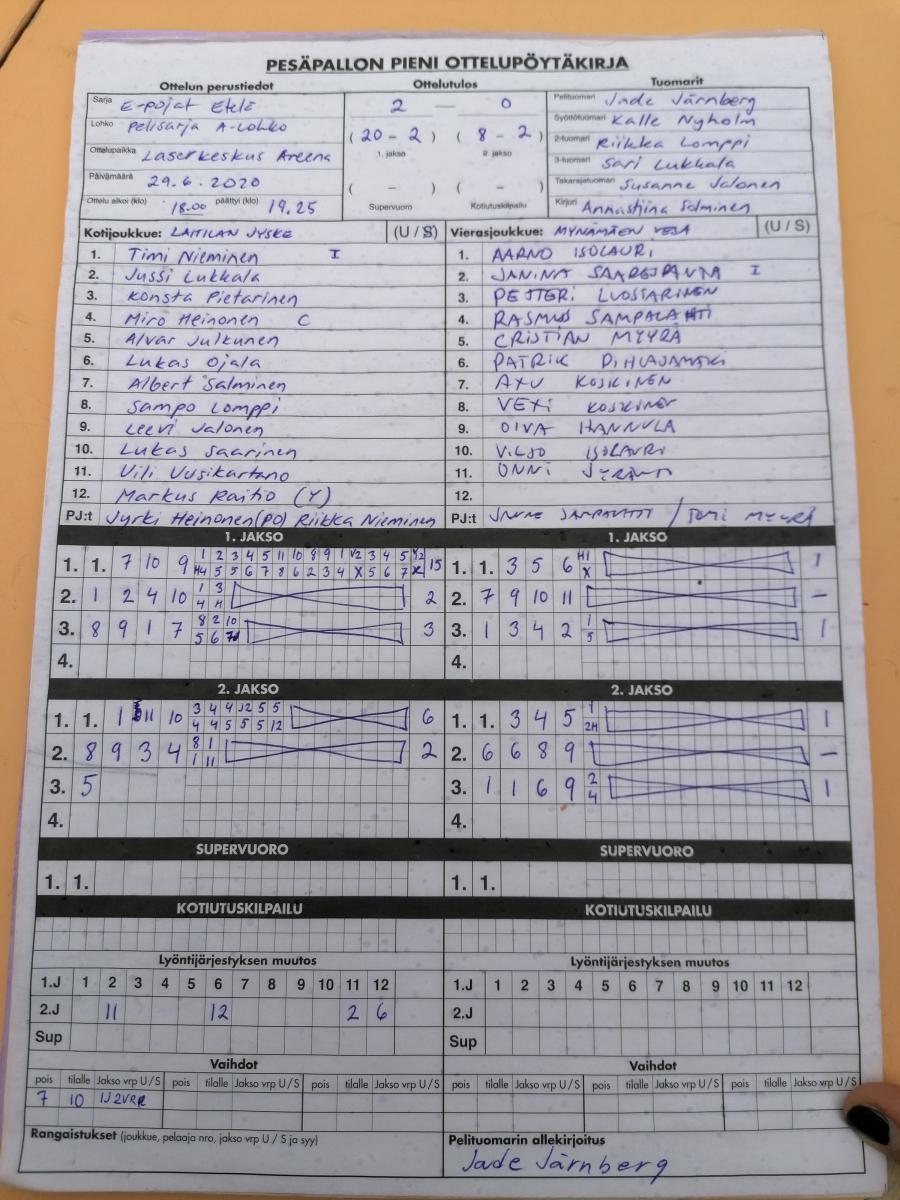 PESÄPALLON PIENI OTTELUPÖYTÄKIRJA
Ottelun perustiedot Ottelutulos Tuomarit
Sarja E-pojat Etelä 2 — 0 Pelituomari Jade Järnberg
Lohko Pelisarja A-Lohko (20 - 2) (8 - 2) Syöttötuomari Kalle Nyholm
1. jakso 2. jakso 2-tuomari Riikka Lomppi
Ottelupaikka Laserkeskus Areena 3-tuomari Sari Lukkala
Päivämäärä 29.6.2020 ( - ) ( - ) Takarajatuomari Susanne Jalonen
Ottelu alkoi (klo) 18.00 päättyi (klo) 19.25 Supervuoro Kotiutuskilpailu Kirjuri Annastiina Salminen
Kotijoukkue: LAITILAN JYSKE (U / S) Vierasjoukkue: MYNÄMÄEN VESA (U / S)
1. Timi Nieminen I 1. AARNO ISOLAURI
2. Jussi Lukkala 2. JANINA I
3. Konsta Pietarinen 3. PETTERI LUOSTARINEN
4. Miro Heinonen C 4. RASMUS SAMPALAHTI
5. Alvar Julkunen 5. CRISTIAN MYYRÄ
6. Lukas Ojala 6. PATRIK PIHLAJAMÄKI
7. Albert Salminen 7. AXU KOSKINEN
8. Sampo Lomppi 8. VEXI KOSKINEN
9. Leevi Jalonen 9. OIVA HANNULA
10. Lukas Saarinen 10. VILJO ISOLAURI
11. Vili Uusikartano 11. ONNI
12. Markus Raitio (Y) 12.
PJ:t Jyrki Heinonen (PO) Riikka Nieminen PJ:t JANNE SAMPALAHTI / TOMI MYYRÄ
1. JAKSO 1. JAKSO
1. 1. 7 10 9 15 1. 1. 3 5 6 H1 X 1
2. 1 2 4 10 1 3 4 H 2 2. 7 9 10 11 –
3. 8 9 1 7 8 2 10 5 6 3 3. 1 3 4 2 1 5 1
4. 4.
2. JAKSO 2. JAKSO
1. 1. 1 11 10 3 4 4 12 5 5 6 1. 1. 3 4 5 1 2H 1
4 4 5 5 5 12
2. 8 9 3 4 8 1 2 2. 6 6 8 9 –
1 11
3. 5 3. 1 1 6 9 2 4 1
4. 4.
SUPERVUORO SUPERVUORO
1. 1. 1. 1.
KOTIUTUSKILPAILU KOTIUTUSKILPAILU
Lyöntijärjestyksen muutos Lyöntijärjestyksen muutos
1.J 1 2 3 4 5 6 7 8 9 10 11 12 1.J 1 2 3 4 5 6 7 8 9 10 11 12
2.J 11 12 2 6 2.J
Sup Sup
Vaihdot Vaihdot
pois tilalle Jakso vrp U / S pois tilalle Jakso vrp U / S pois tilalle Jakso vrp U / S pois tilalle Jakso vrp U / S pois tilalle Jakso vrp U / S pois tilalle Jakso vrp U / S
7 10
Rangaistukset (joukkue, pelaaja nro, jakso vrp U / S ja syy) Pelituomarin allekirjoitus
Jade Järnberg